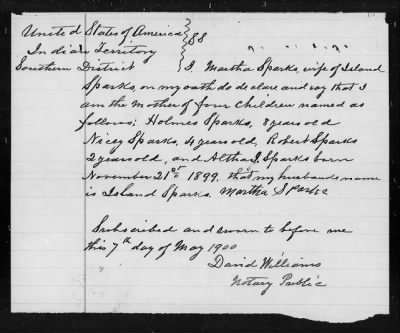 United States of America
Indian Territory } SS
Southern District } I, Martha Sparks, wife of Island
Sparks, on my oath do declare and say that I
am the mother of four children named as
follows; Holmes Sparks, 8 years old
Nicey Sparks, 4 years old, Robert Sparks
2 years old, and Altha I. Sparks born
November 21st 1899. that my husbands name
is Island Sparks. Martha Sparks
Subscribed and sworn to before me
this 7th day of May 1900
David Williams
Notary Public